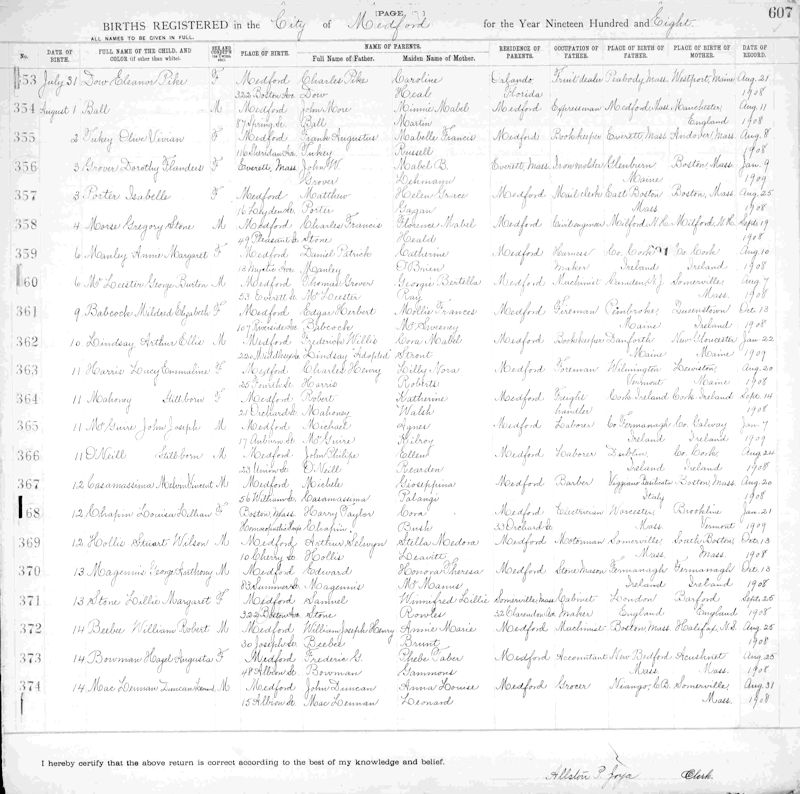 [PAGE 607
BIRTHS REGISTERED in the City of Medford for the Year Nineteen Hundred and Eight.
ALL NAMES TO BE GIVEN IN FULL.
No. DATE OF BIRTH. FULL NAME OF THE CHILD, AND COLOR (if other than white). PLACE OF BIRTH. NAME OF PARENTS. Full Name of Father. Maiden Name of Mother. RESIDENCE OF PARENTS. OCCUPATION OF FATHER. PLACE OF BIRTH OF FATHER. PLACE OF BIRTH OF MOTHER. DATE OF RECORD.
353 July 31 Dow Eleanor Pike F Medford Charles Pike Caroline Orlando Fruit dealer Peabody Mass. Westport, Maine Aug. 21
322 Boston Ave Dow Heal Florida 1908
354 August 1 Ball M Medford John More Minnie Mabel Medford Expressman Medford Mass. Manchester, Aug. 11
87 Spring St. Ball Martin England 1908
355 2 Tukey Olive Vivian F Medford Frank Augustus Mabelle Francis Medford Bookkeeper Everett Mass Andover Mass. Aug. 8
116 Sheridan Ave Tukey Russell 1908
356 3 Grover Dorothy Flanders F Everett, Mass John W. Mabel B. Everett, Mass Iron molder Glenburn Boston, Mass. Jan. 9
Grover Lehmann Maine 1909
357 3 Porter Isabelle F Medford Matthew Helen Grace Medford Mail clerk East Boston Boston, Mass. Aug. 25
Porter Gagan Mass. 1908
358 4 Morse Gregory Stone M Medford Charles Francis Florence Mabel Medford Civil engineer Milford, N.H. Milford, N.H. Sept. 19
49 Pleasant St. Stone Heald 1908
359 6 Manley Anna Margaret F Medford Daniel Patrick Catherine Medford Harness Co. Cork Co. Cork Aug. 10
18 Mystic Ave Manley O'Brien maker Ireland Ireland 1908
60 6 McLester George Burton M Medford Thomas Grover Georgie Bertella Medford Machinist Camden N.J. Somerville, Aug. 7
53 Everett St. McLester Ray Mass. 1908
361 9 Babcock Mildred Elizabeth F Medford Edgar Herbert Mollie Frances Medford Foreman Pembroke, Queenstown Oct. 13
107 Riverside Ave Babcock McSweeney Maine Ireland 1908
362 10 Lindsay Arthur Ellis M Medford Frederick Willis Cora Mabel Medford Bookkeeper Danforth New Gloucester Jan. 22
Lindsay Adopted Strout Maine Maine 1909
363 11 Harris Lucy Emmaline F Medford Charles Henry Lilly Nora Medford Foreman Wilmington Lewiston, Aug. 20
25 Fourth St. Harris Roberts Vermont Maine 1908
364 11 Mahoney Stillborn F Medford Robert Katherine Medford Freight Cork Ireland Cork Ireland Sept. 14
21 Orchard St. Mahoney Walsh handler 1908
365 11 McGuire John Joseph M Medford Michael Agnes Medford Laborer Co Fermanagh Co. Galway Jan. 7
17 Auburn St. McGuire Kilroy Ireland Ireland 1909
366 11 O'Neill Stillborn M Medford John Philipe Ellen Medford Laborer Dublin, Co. Cork, Aug. 24
23 Union St. O'Neill Rearden Ireland Ireland 1908
367 12 Casamassima Melvin Vincent M Medford Michele Gioseppina Medford Barber Viggiano Basilicata Boston, Mass. Aug. 20
56 William St. Casamassima Palangi Italy 1908
68 12 Chapin Louisa Lillian F Boston, Mass. Harry Taylor Cora Medford Eastman Worcester, Brookline Jan. 21
Homoeopathic Hosp. Chapin Bush 33 Orchard St. Mass. Vermont 1909
369 12 Hollis Stuart Wilson M Medford Arthur Selwyn Stella Medora Medford Motorman Somerville, South Boston, Oct. 13
10 Cherry St. Hollis Leavitt Mass. Mass. 1908
370 13 Magennis George Anthony M Medford Edward Honora Theresa Medford Stone Mason Fermanagh Fermanagh Oct. 13
83 Summer St. Magennis McManus Ireland Ireland 1908
371 13 Stone Lillie Margaret F Medford Samuel Winnifred Lillie Somerville, Mass Cabinet London Barford Sept. 25
322 Boston Ave Stone Bowles 32 Clarendon Ave Maker England England 1908
372 14 Beebee William Robert M Medford William Joseph Henry Annie Marie Medford Machinist Boston, Mass. Halifax, N.S. Aug. 25
30 Joseph St. Beebee Brunt 1908
373 14 Bowman Hazel Augusta F Medford Frederic G. Phebe Taber Medford Accountant New Bedford Acushnet Aug. 25
48 Albion St. Bowman Gammons Mass. Mass. 1908
374 14 MacLennan Duncan M Medford John Duncan Anna Louise Medford Grocer Niango, C.B. Somerville, Aug. 31
15 Albion St. MacLennan Leonard Mass. 1908
I hereby certify that the above return is correct according to the best of my knowledge and belief.
Allston P. Joyce Clerk.